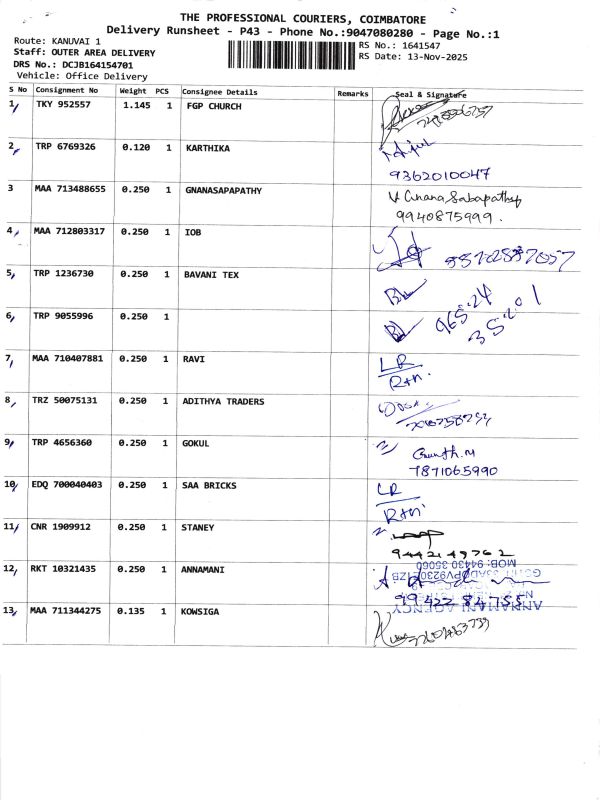 THE PROFESSIONAL COURIERS, COIMBATORE
Delivery Runsheet - P43 - Phone No.:9047080280 - Page No.:1
Route: KANUVAI 1
Staff: OUTER AREA DELIVERY
DRS No.: DCJB164154701
Vehicle: Office Delivery
RS No.: 1641547
RS Date: 13-Nov-2025
S No Consignment No Weight PCS Consignee Details Remarks Seal & Signature
1 TKY 952557 1.145 1 FGP CHURCH
2 TRP 6769326 0.120 1 KARTHIKA
9362010047
3 MAA 713488655 0.250 1 GNANASAPAPATHY V Gnana Sabapathy
9940875999.
4 MAA 712803317 0.250 1 IOB
5 TRP 1236730 0.250 1 BAVANI TEX
6 TRP 9055996 0.250 1
965 24
35201
7 MAA 710407881 0.250 1 RAVI LR
Rtn.
8 TRZ 50075131 0.250 1 ADITHYA TRADERS
9 TRP 4656360 0.250 1 GOKUL
7871065990
10 EDQ 700040403 0.250 1 SAA BRICKS LR
Rtn
11 CNR 1909912 0.250 1 STANEY
9442149762
12 RKT 10321435 0.250 1 ANNAMANI
MOB: 94430 35060
99422 84755
ANNAMANI AGENCY
13 MAA 711344275 0.135 1 KOWSIGA